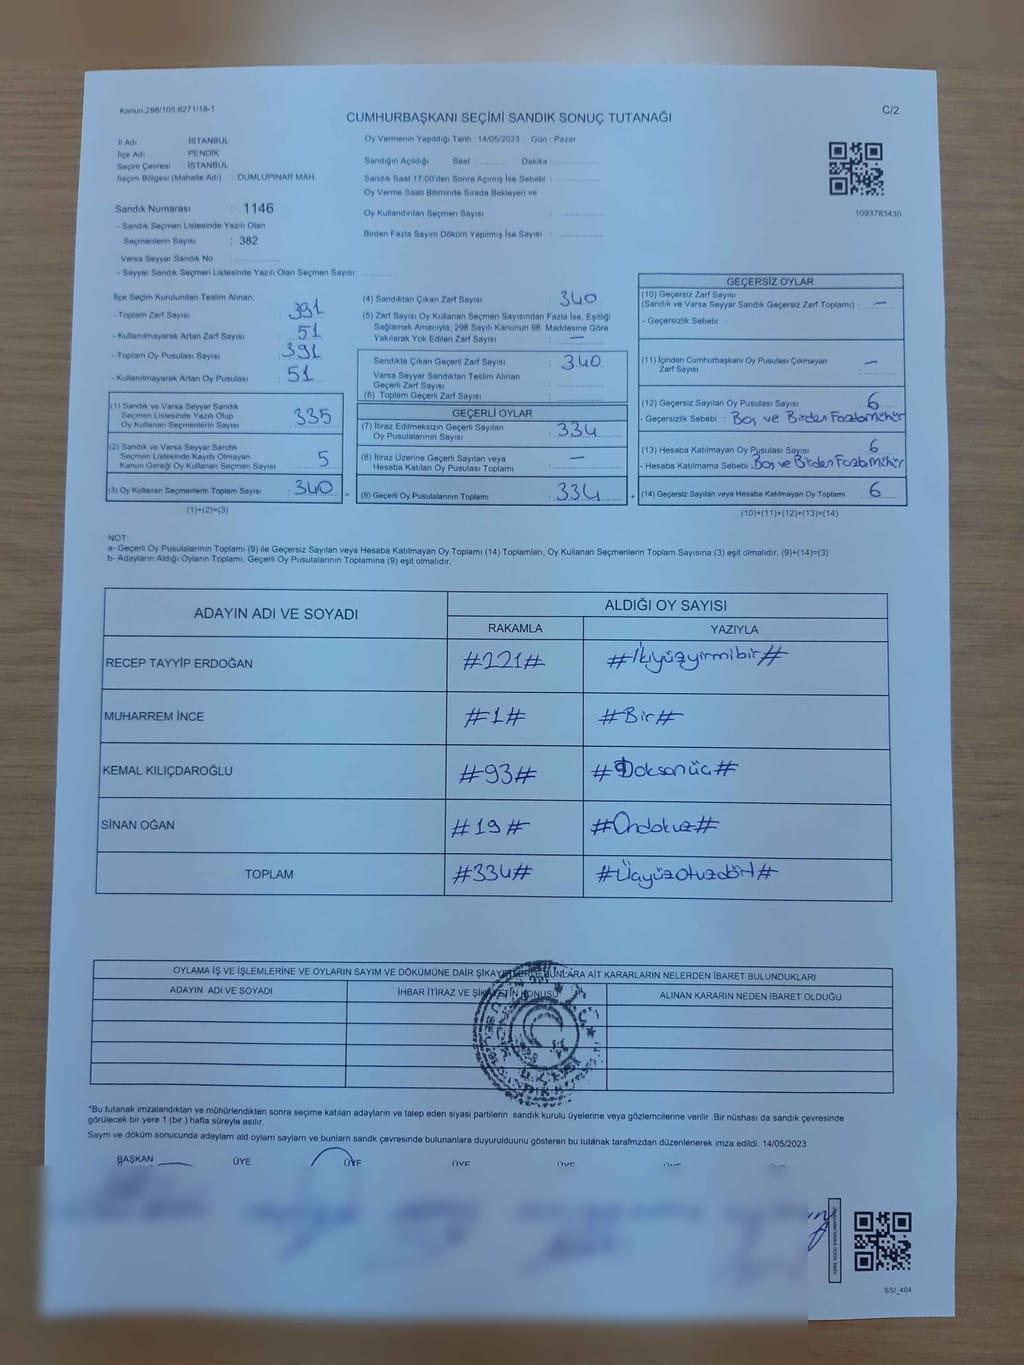 Kanun:298/105.6271/18-1
C/2
CUMHURBAŞKANI SEÇİMİ SANDIK SONUÇ TUTANAĞI
İl Adı İSTANBUL
İlçe Adı PENDİK
Seçim Çevresi İSTANBUL
Seçim Bölgesi (Mahalle Adı) : DUMLUPINAR MAH.
Oy Vermenin Yapıldığı Tarih : 14/05/2023 Gün : Pazar
Sandığın Açıldığı Saat Dakika :
Sandık Saat 17:00'den Sonra Açımış İse Sebebi :
Oy Verme Saati Bitiminde Sırada Bekleyen ve
Oy Kullandırılan Seçmen Sayısı :
Birden Fazla Sayım Döküm Yapılmış İse Sayısı :
1093783430
Sandık Numarası : 1146
- Sandık Seçmen Listesinde Yazılı Olan
Seçmenlerin Sayısı : 382
Varsa Seyyar Sandık No :
- Seyyar Sandık Seçmen Listesinde Yazılı Olan Seçmen Sayısı:
İlçe Seçim Kurulundan Teslim Alınan;
- Toplam Zarf Sayısı : 391
- Kullanılmayarak Artan Zarf Sayısı : 51
- Toplam Oy Pusulası Sayısı : 391
- Kullanılmayarak Artan Oy Pusulası : 51
(1) Sandık ve Varsa Seyyar Sandık
Seçmen Listesinde Yazılı Olup
Oy Kullanan Seçmenlerin Sayısı : 335
(2) Sandık ve Varsa Seyyar Sandık
Seçmen Listesinde Kayıtlı Olmayan
Kanun Gereği Oy Kullanan Seçmen Sayısı : 5
(3) Oy Kullanan Seçmenlerin Toplam Sayısı : 340
(1)+(2)=(3)
(4) Sandıktan Çıkan Zarf Sayısı : 340
(5) Zarf Sayısı Oy Kullanan Seçmen Sayısından Fazla İse, Eşitliği
Sağlamak Amacıyla; 298 Sayılı Kanunun 98. Maddesine Göre
Yakılarak Yok Edilen Zarf Sayısı : —
Sandıkla Çıkan Geçerli Zarf Sayısı : 340
Varsa Seyyar Sandıktan Teslim Alınan
Geçerli Zarf Sayısı :
(6) Toplam Geçerli Zarf Sayısı :
GEÇERLİ OYLAR
(7) İtiraz Edilmeksizin Geçerli Sayılan
Oy Pusulalarının Sayısı : 334
(8) İtiraz Üzerine Geçerli Sayılan veya
Hesaba Katılan Oy Pusulası Toplamı : —
(9) Geçerli Oy Pusulalarının Toplamı : 334
=
+
GEÇERSİZ OYLAR
(10) Geçersiz Zarf Sayısı
(Sandık ve Varsa Seyyar Sandık Geçersiz Zarf Toplamı) : —
- Geçersizlik Sebebi :
(11) İçinden Cumhurbaşkanı Oy Pusulası Çıkmayan
Zarf Sayısı : —
(12) Geçersiz Sayılan Oy Pusulası Sayısı : 6
- Geçersizlik Sebebi : Boş ve Birden Fazla mühür
(13) Hesaba Katılmayan Oy Pusulası Sayısı : 6
- Hesaba Katılmama Sebebi : Boş ve Birden Fazla Mühür
(14) Geçersiz Sayılan veya Hesaba Katılmayan Oy Toplamı : 6
(10)+(11)+(12)+(13)=(14)
NOT:
a- Geçerli Oy Pusulalarının Toplamı (9) ile Geçersiz Sayılan veya Hesaba Katılmayan Oy Toplamı (14) Toplamları, Oy Kullanan Seçmenlerin Toplam Sayısına (3) eşit olmalıdır. (9)+(14)=(3)
b- Adayların Aldığı Oyların Toplamı, Geçerli Oy Pusulalarının Toplamına (9) eşit olmalıdır.
ADAYIN ADI VE SOYADI
ALDIĞI OY SAYISI
RAKAMLA YAZIYLA
RECEP TAYYİP ERDOĞAN #221# #İkiyüzyirmibir#
MUHARREM İNCE #1# #Bir#
KEMAL KILIÇDAROĞLU #93# #Doksanüç#
SİNAN OĞAN #19# #Ondokuz#
TOPLAM #334# #Üçyüzotuzdört#
OYLAMA İŞ VE İŞLEMLERİNE VE OYLARIN SAYIM VE DÖKÜMÜNE DAİR ŞİKAYETLERLE BUNLARA AİT KARARLARIN NELERDEN İBARET BULUNDUKLARI
ADAYIN ADI VE SOYADI İHBAR İTİRAZ VE ŞİKAYETİN KONUSU ALINAN KARARIN NEDEN İBARET OLDUĞU
*Bu tutanak imzalandıktan ve mühürlendikten sonra seçime katılan adayların ve talep eden siyasi partilerin sandık kurulu üyelerine veya gözlemcilerine verilir .Bir nüshası da sandık çevresinde
görülecek bir yere 1 (bir ) hafta süreyle asılır.
Sayım ve döküm sonucunda adaylarn ald oylarn saylarn ve bunlarn sandk çevresinde bulunanlara duyurulduunu gösteren bu tutanak tarafmzdan düzenlenerek imza edildi. 14/05/2023
BAŞKAN ÜYE ÜYE ÜYE ÜYE ÜYE
SS1_404